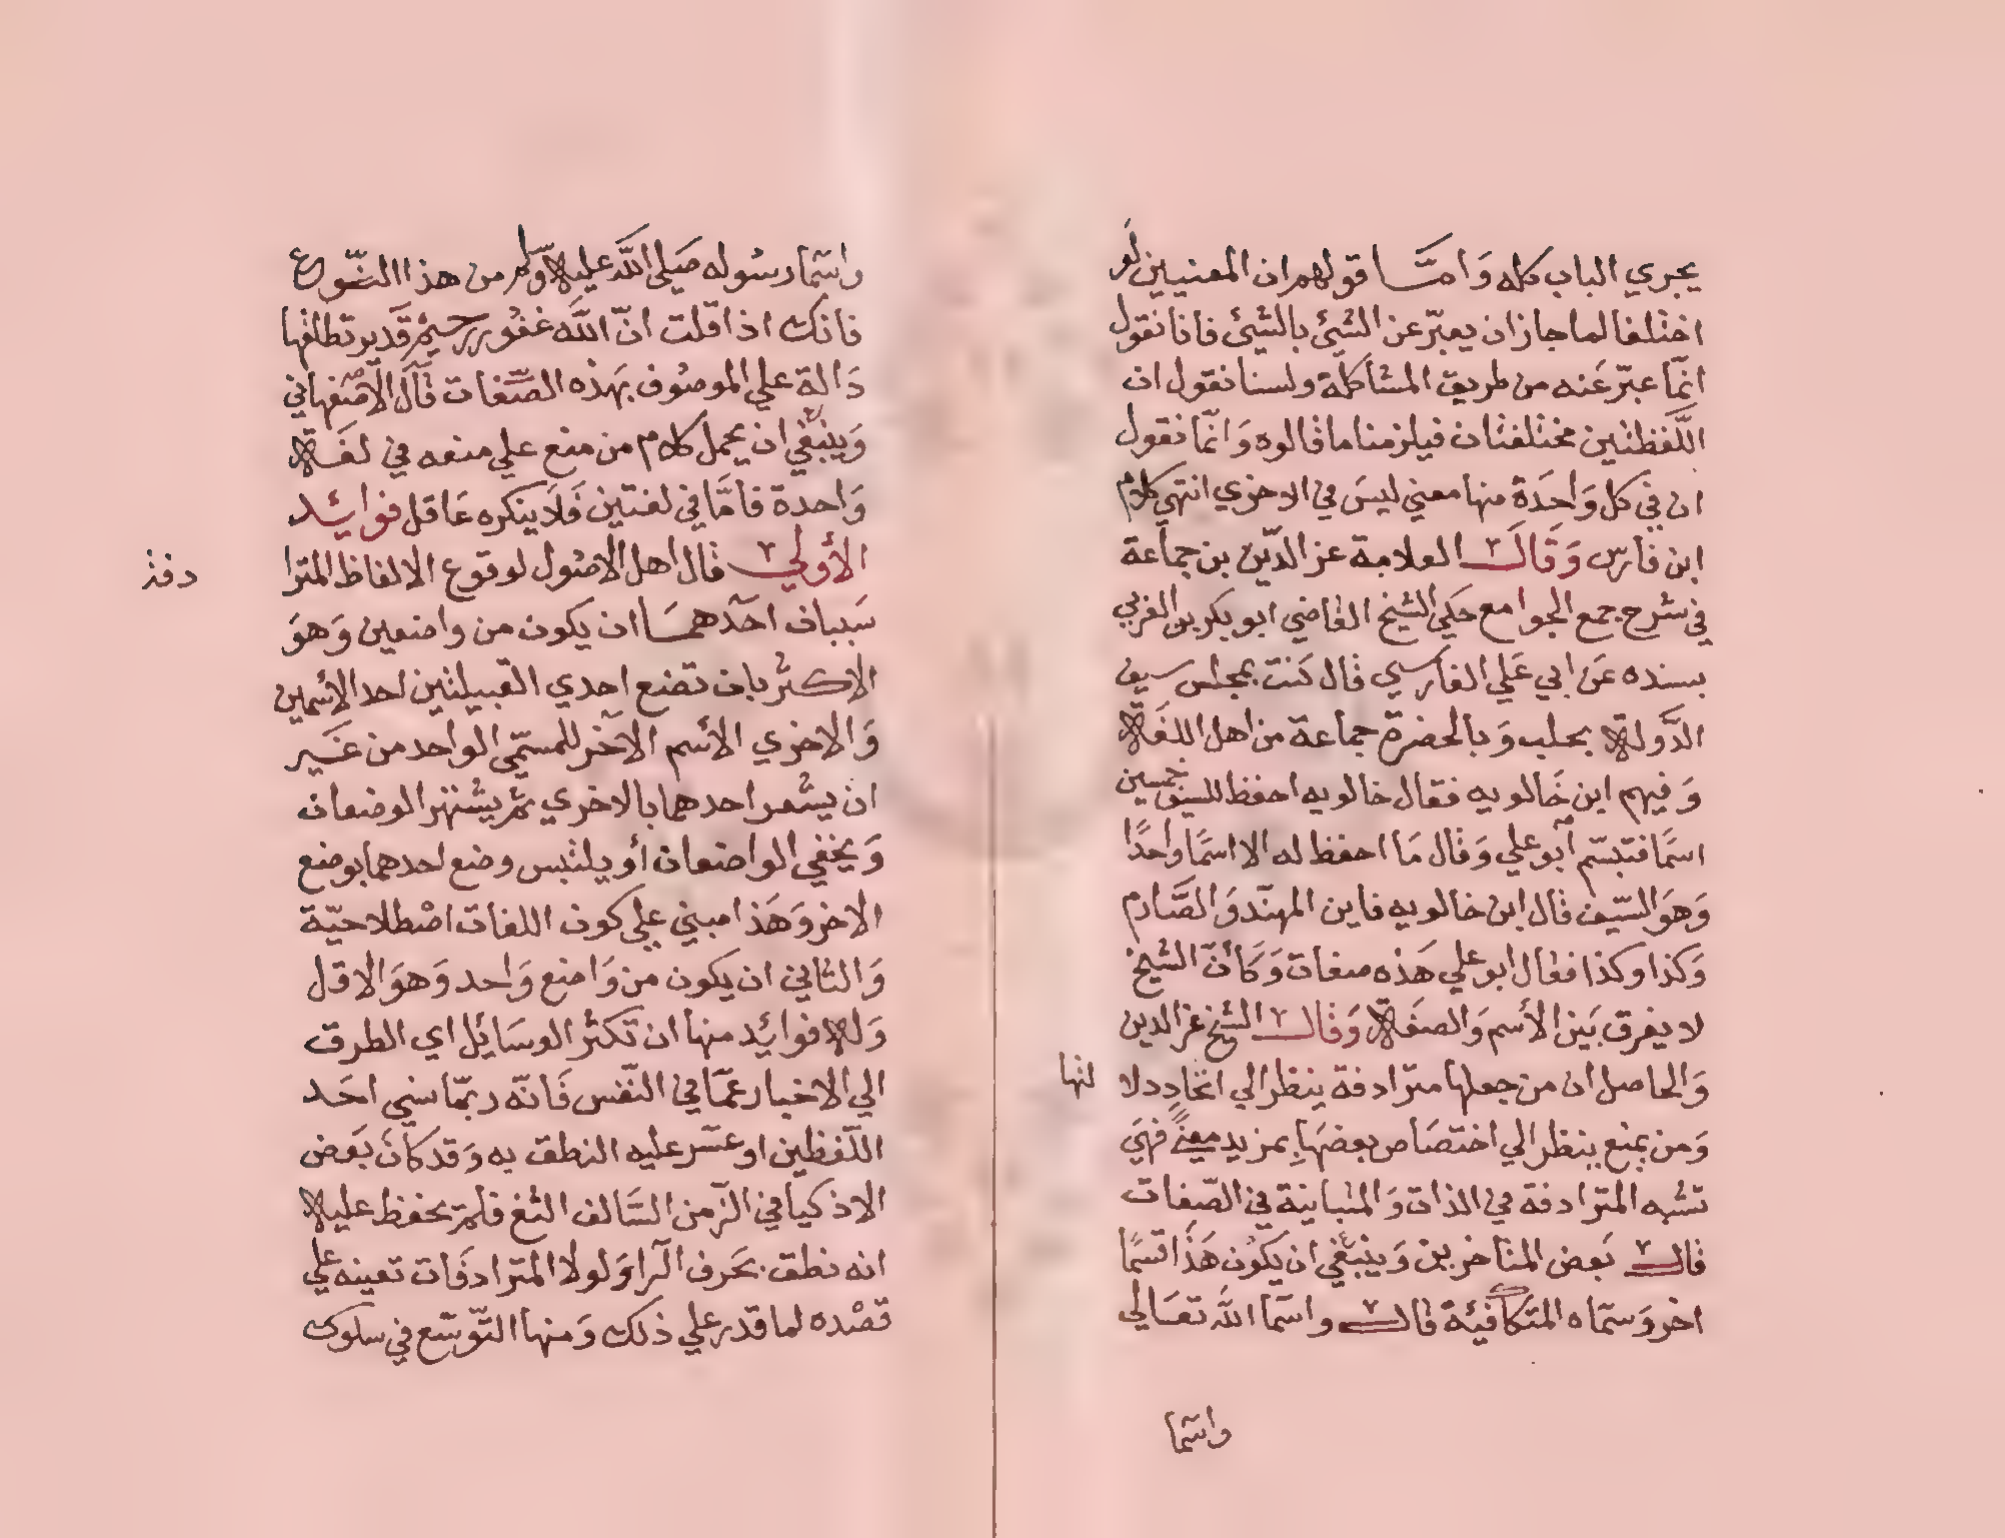 يجري الباب كله وَامَّا قولهم ان المعنيين لَو
اختلفا لما جاز ان يعبّر عن الشئ بالشئ فانا نقول
انمّا عبّر عَنه من طريق المشاكلة ولسنا نقول ان
اللّفظتين مختلفتان فيلزمنا ما قالوه وَانمّا نقول
ان في كل وَاحدَة منها معني ليسَ في الاخري انتهي كلام
ابن فارس وَقَالَ العلامة عز الدّين بن جماعة
في شرح جمع الجوامع حَكي الشيخ القاضي ابو بكر بن العربي
بسنده عَن ابي عَلي الفارسي قال كنت بمجلس سيف
الدَّولة بحلب وَبالحضرة جماعة من اهل اللغَة
وَفيهم ابن خَالويه فقال خالويه احفظ للسيف خمسين
اسمًا فتبسّم أبو علي وَقال مَا احفظ له الا اسمًا واحدًا
وَهوَ السّيف قال ابن خالويه فاين المهنّد وَالصَّارم
وَكذا وكذا فقال ابو علي هَذه صفات وَكَأنّ الشيخ
لا يفرق بَين الأسم وَالصفَة وَقال الشيخ عز الدين
وَالحاصل ان من جعلها مترادفة ينظر الي اتحاد دلا لتها
وَمن يمنع ينظر الي اختصَاص بعضهَا بمزيد معنيً فهيَ
تشبه المترادفة في الذات وَالمتباينة في الصّفات
قال بَعض المتأخرين وَينبغي ان يَكوُن هَذَا قسمًا
اخر وَسمّاه المتكافيئة قال واسمّا الله تعَالي
واسمّا
واسمّا رسوُله صَلي اللّه عليه وسَلم من هذا النّوع
فانك اذا قلت انّ اللّه غفوُر رحيم قَدير تطلقها
دَالة علي الموصوُف بهَذه الصّفات قَالَ الاصْفهاني
وَينبَغي ان يحمل كلام من منع علي منعه في لغَة
وَاحدة فامَّا في لغتين فَلَا ينكره عَاقل فوائد
الأولي قال اهل الاصُول لوقوع الالفاظ المترا دفة
سَببان احَدهمَا ان يكون من واضعين وَهوَ
الاكثر بان تضع احدي القبيلتين احد الأسمين
وَالاخري الأسم الآخر للمسمّي الواحد من غَير
ان يشعر احدهما بالاخري ثم يشتهر الوضعان
وَيخفي الواضعان أو يلتبس وضع احدهما بوضع
الاخر وَهَذا مبني علي كون اللغات اصْطلاحيّة
وَالثاني ان يكون من وَاضع وَاحد وَهوَ الاقل
وَله فوائد منها ان تكثر الوسَائل اي الطرق
الي الاخبار عمّا في النّفس فَانّه ربمّا نسي احَد
اللّفظين او عسّر عليه النطق به وَقد كانَ بَعض
الاذكيا في الزّمن السّالف الثغ فلم يحفظ عليه
انه نطق بحَرف الرّا وَلولا المترادفَات تعينه علي
قصْده لما قدر علي ذلك وَمنها التّوسّع في سلوك